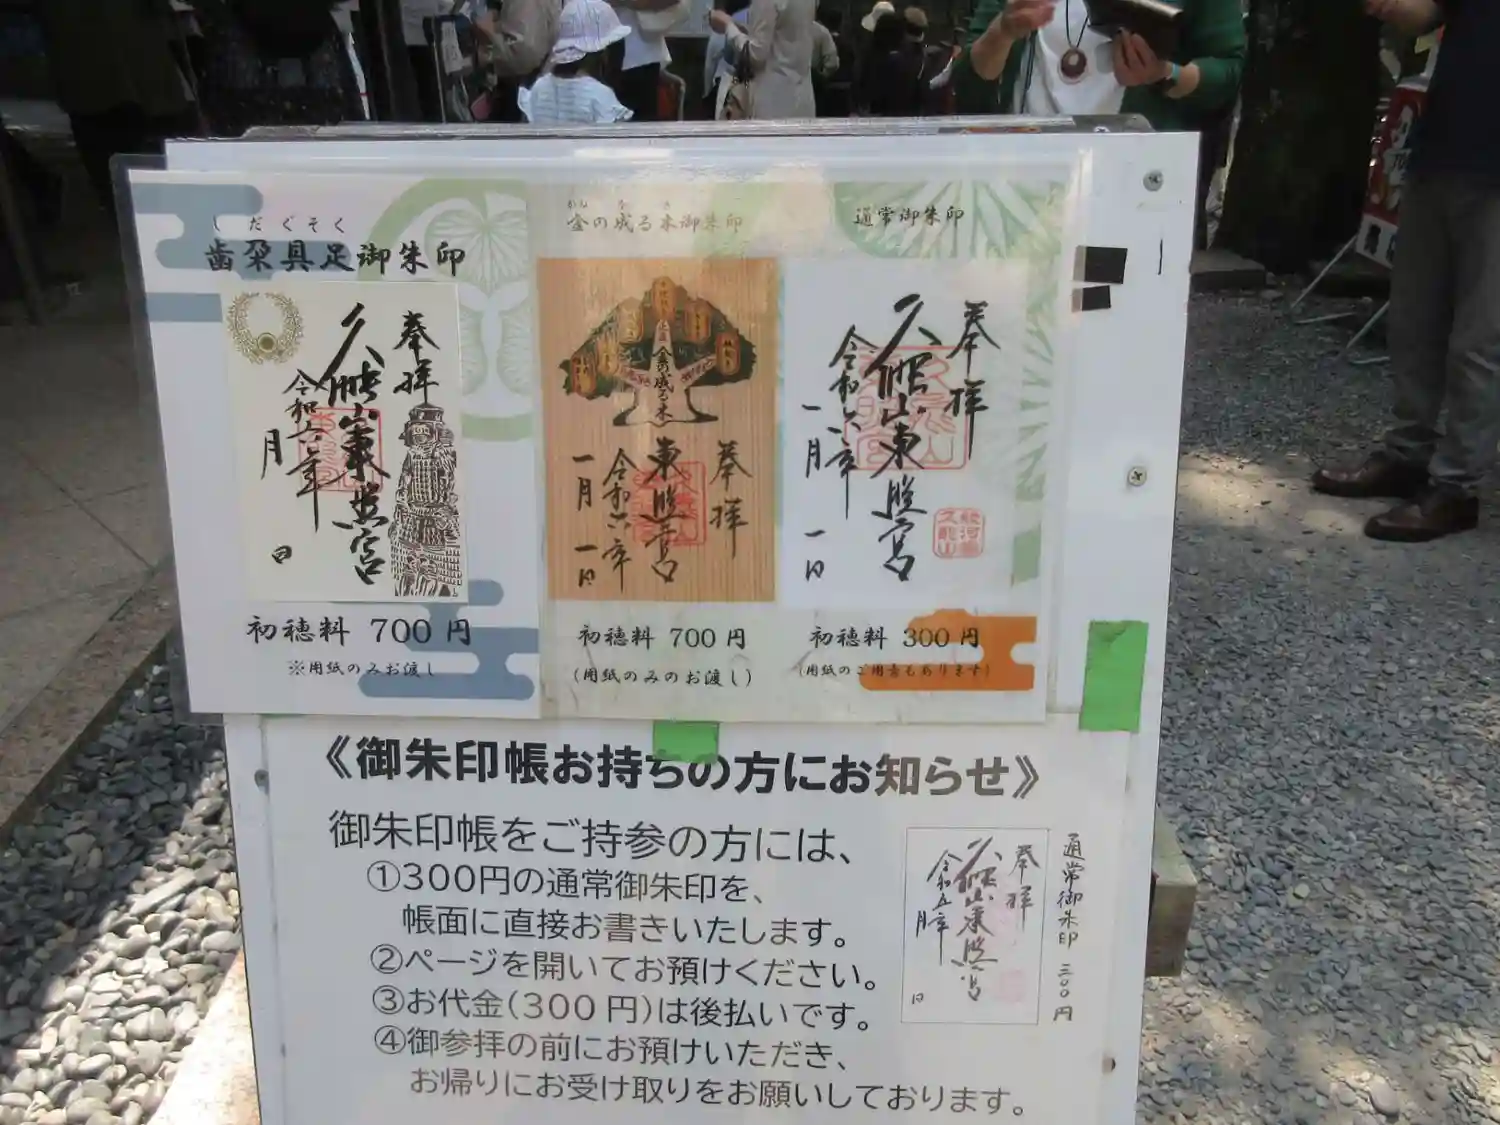 しだぐそく
歯朶具足御朱印
奉拝
久能山東照宮
令和六年
月
日
初穂料 700円
※用紙のみお渡し
かね な き
金の成る木御朱印
金の成る木
奉拝
東照宮
令和六年
一月
一日
初穂料 700円
(用紙のみのお渡し)
通常御朱印
奉拝
久能山東照宮
令和六年
一月
一日
初穂料 300円
(用紙のご用意もあります)
《御朱印帳お持ちの方にお知らせ》
御朱印帳をご持参の方には、
①300円の通常御朱印を、
帳面に直接お書きいたします。
②ページを開いてお預けください。
③お代金(300円)は後払いです。
④御参拝の前にお預けいただき、
お帰りにお受け取りをお願いしております。
奉拝
久能山東照宮
令和五年
月
日
通常御朱印 三〇〇円